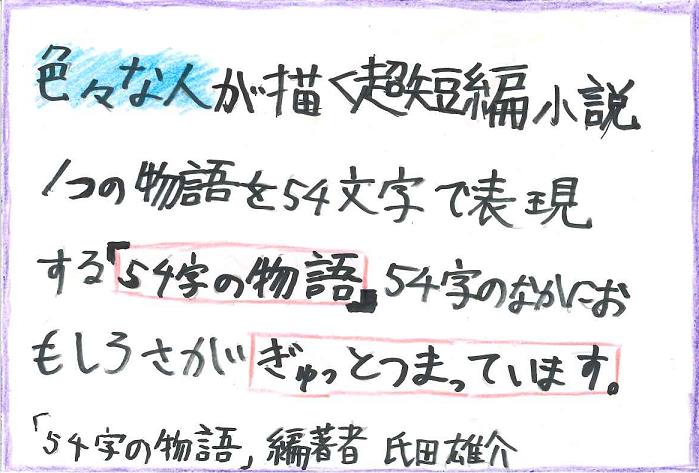 色々な人が描く超短編小説
1つの物語を54文字で表現
する「54字の物語」54字のなかにお
もしろさがぎゅっとつまっています。
「54字の物語」編著者 氏田雄介